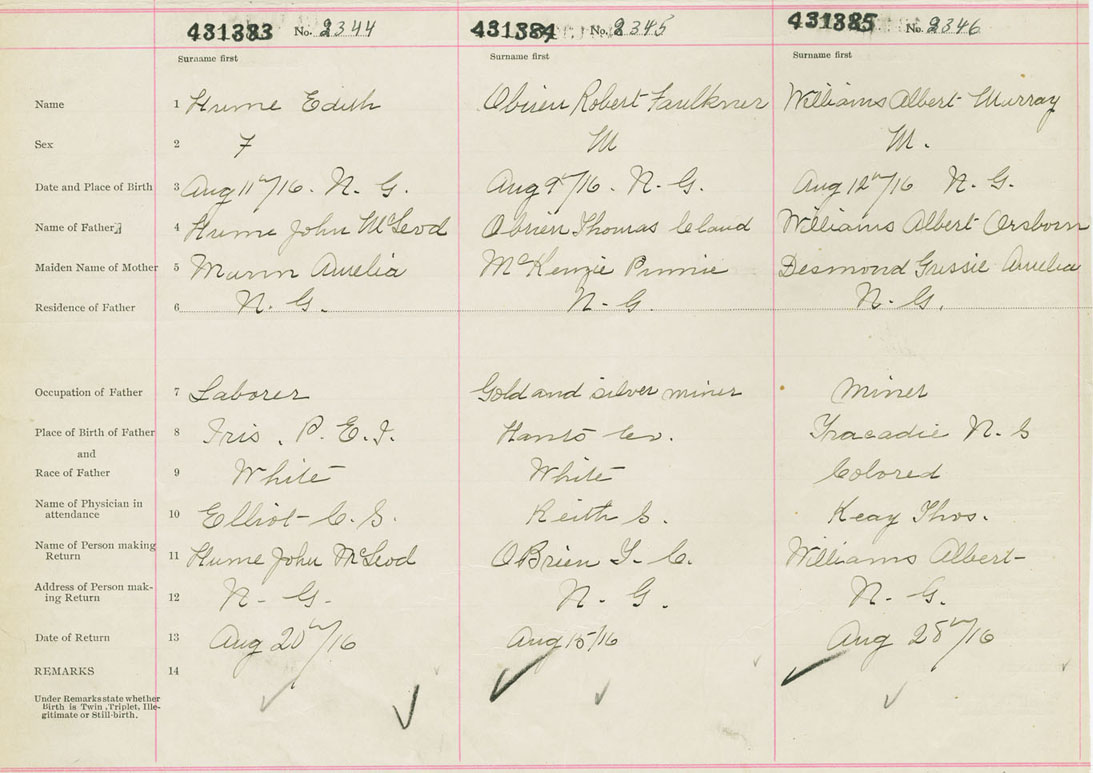 431383 No. 2344 431384 No. 2345 431385 No. 2346
Surname first Surname first Surname first
Name 1 Hume Edith Obrien Robert Faulkner Williams Albert Murray
Sex 2 F M M.
Date and Place of Birth 3 Aug 11th/16. N. G. Aug 9th/16. N. G. Aug 12th/16 N. G.
Name of Father 4 Hume John McLeod Obrien Thomas Cleland Williams Albert Orsborn
Maiden Name of Mother 5 Munn Amelia McKenzie Desmond Gressie Amelia
Residence of Father 6 N. G. N. G. N. G.
Occupation of Father 7 Laborer Gold and silver miner Miner
Place of Birth of Father 8 Iris, P. E. I. Hants Co. Tracadie N. S
and
Race of Father 9 White White Colored
Name of Physician in
attendance 10 Elliot C. S. Keith G. Keay Thos.
Name of Person making
Return 11 Hume John McLeod OBrien T. C. Williams Albert
Address of Person mak-
ing Return 12 N. G. N. G. N. G.
Date of Return 13 Aug 20th/16 Aug 15/16 Aug 28th/16
REMARKS 14
Under Remarks state whether
Birth is Twin, Triplet, Ille-
gitimate or Still-birth.